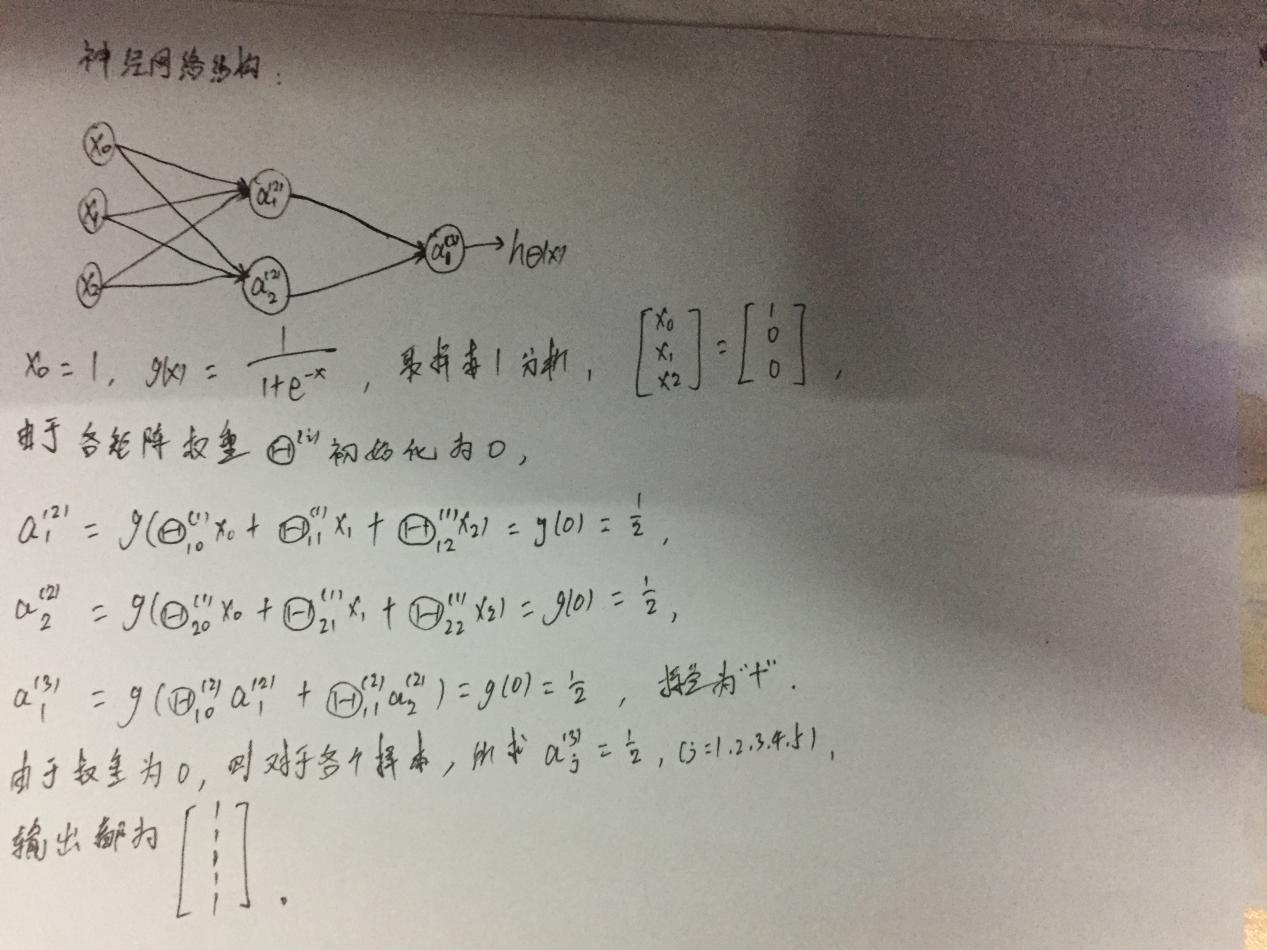 神经网络结构:
x₀
x₁
x₂
a₁⁽²⁾
a₂⁽²⁾
a₁⁽³⁾
hθ(x)
x₀ = 1, g(x) = 1/(1+e⁻ˣ), 取样本1分析, [x₀ x₁ x₂] = [1 0 0],
由于各矩阵权重 Θ⁽ⁱ⁾ 初始化为0,
a₁⁽²⁾ = g(Θ₁₀⁽¹⁾x₀ + Θ₁₁⁽¹⁾x₁ + Θ₁₂⁽¹⁾x₂) = g(0) = 1/2,
a₂⁽²⁾ = g(Θ₂₀⁽¹⁾x₀ + Θ₂₁⁽¹⁾x₁ + Θ₂₂⁽¹⁾x₂) = g(0) = 1/2,
a₁⁽³⁾ = g(Θ₁₀⁽²⁾a₁⁽²⁾ + Θ₁₁⁽²⁾a₂⁽²⁾) = g(0) = 1/2, 为"+".
由于权重为0, 则对于各个样本, 所求 aⱼ⁽³⁾ = 1/2, (j=1.2.3.4.5),
输出都为 [1 1 1 1 1].